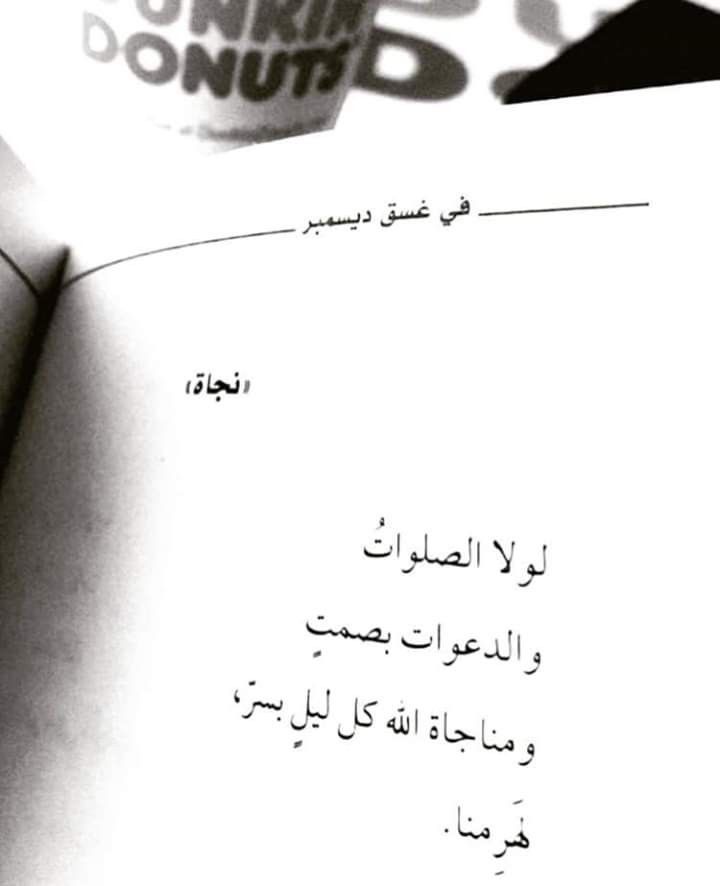 DUNKIN'
DONUTS
في غسق ديسمبر
«نجاة»
لولا الصلواتُ
والدعوات بصمتٍ
ومناجاة الله كل ليلٍ بسرّ،
لَهَرِمنا.